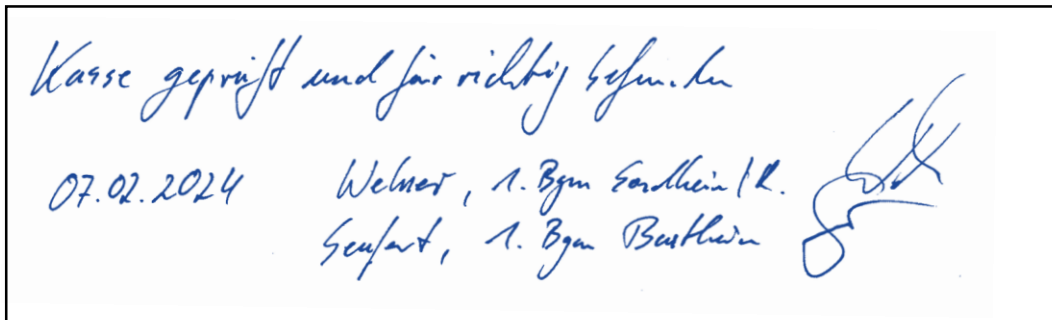 Kasse geprüft und für richtig befunden
07.02.2024 Wehner, 1. Bgm Sondheim/R.
Seufert, 1. Bgm Bastheim